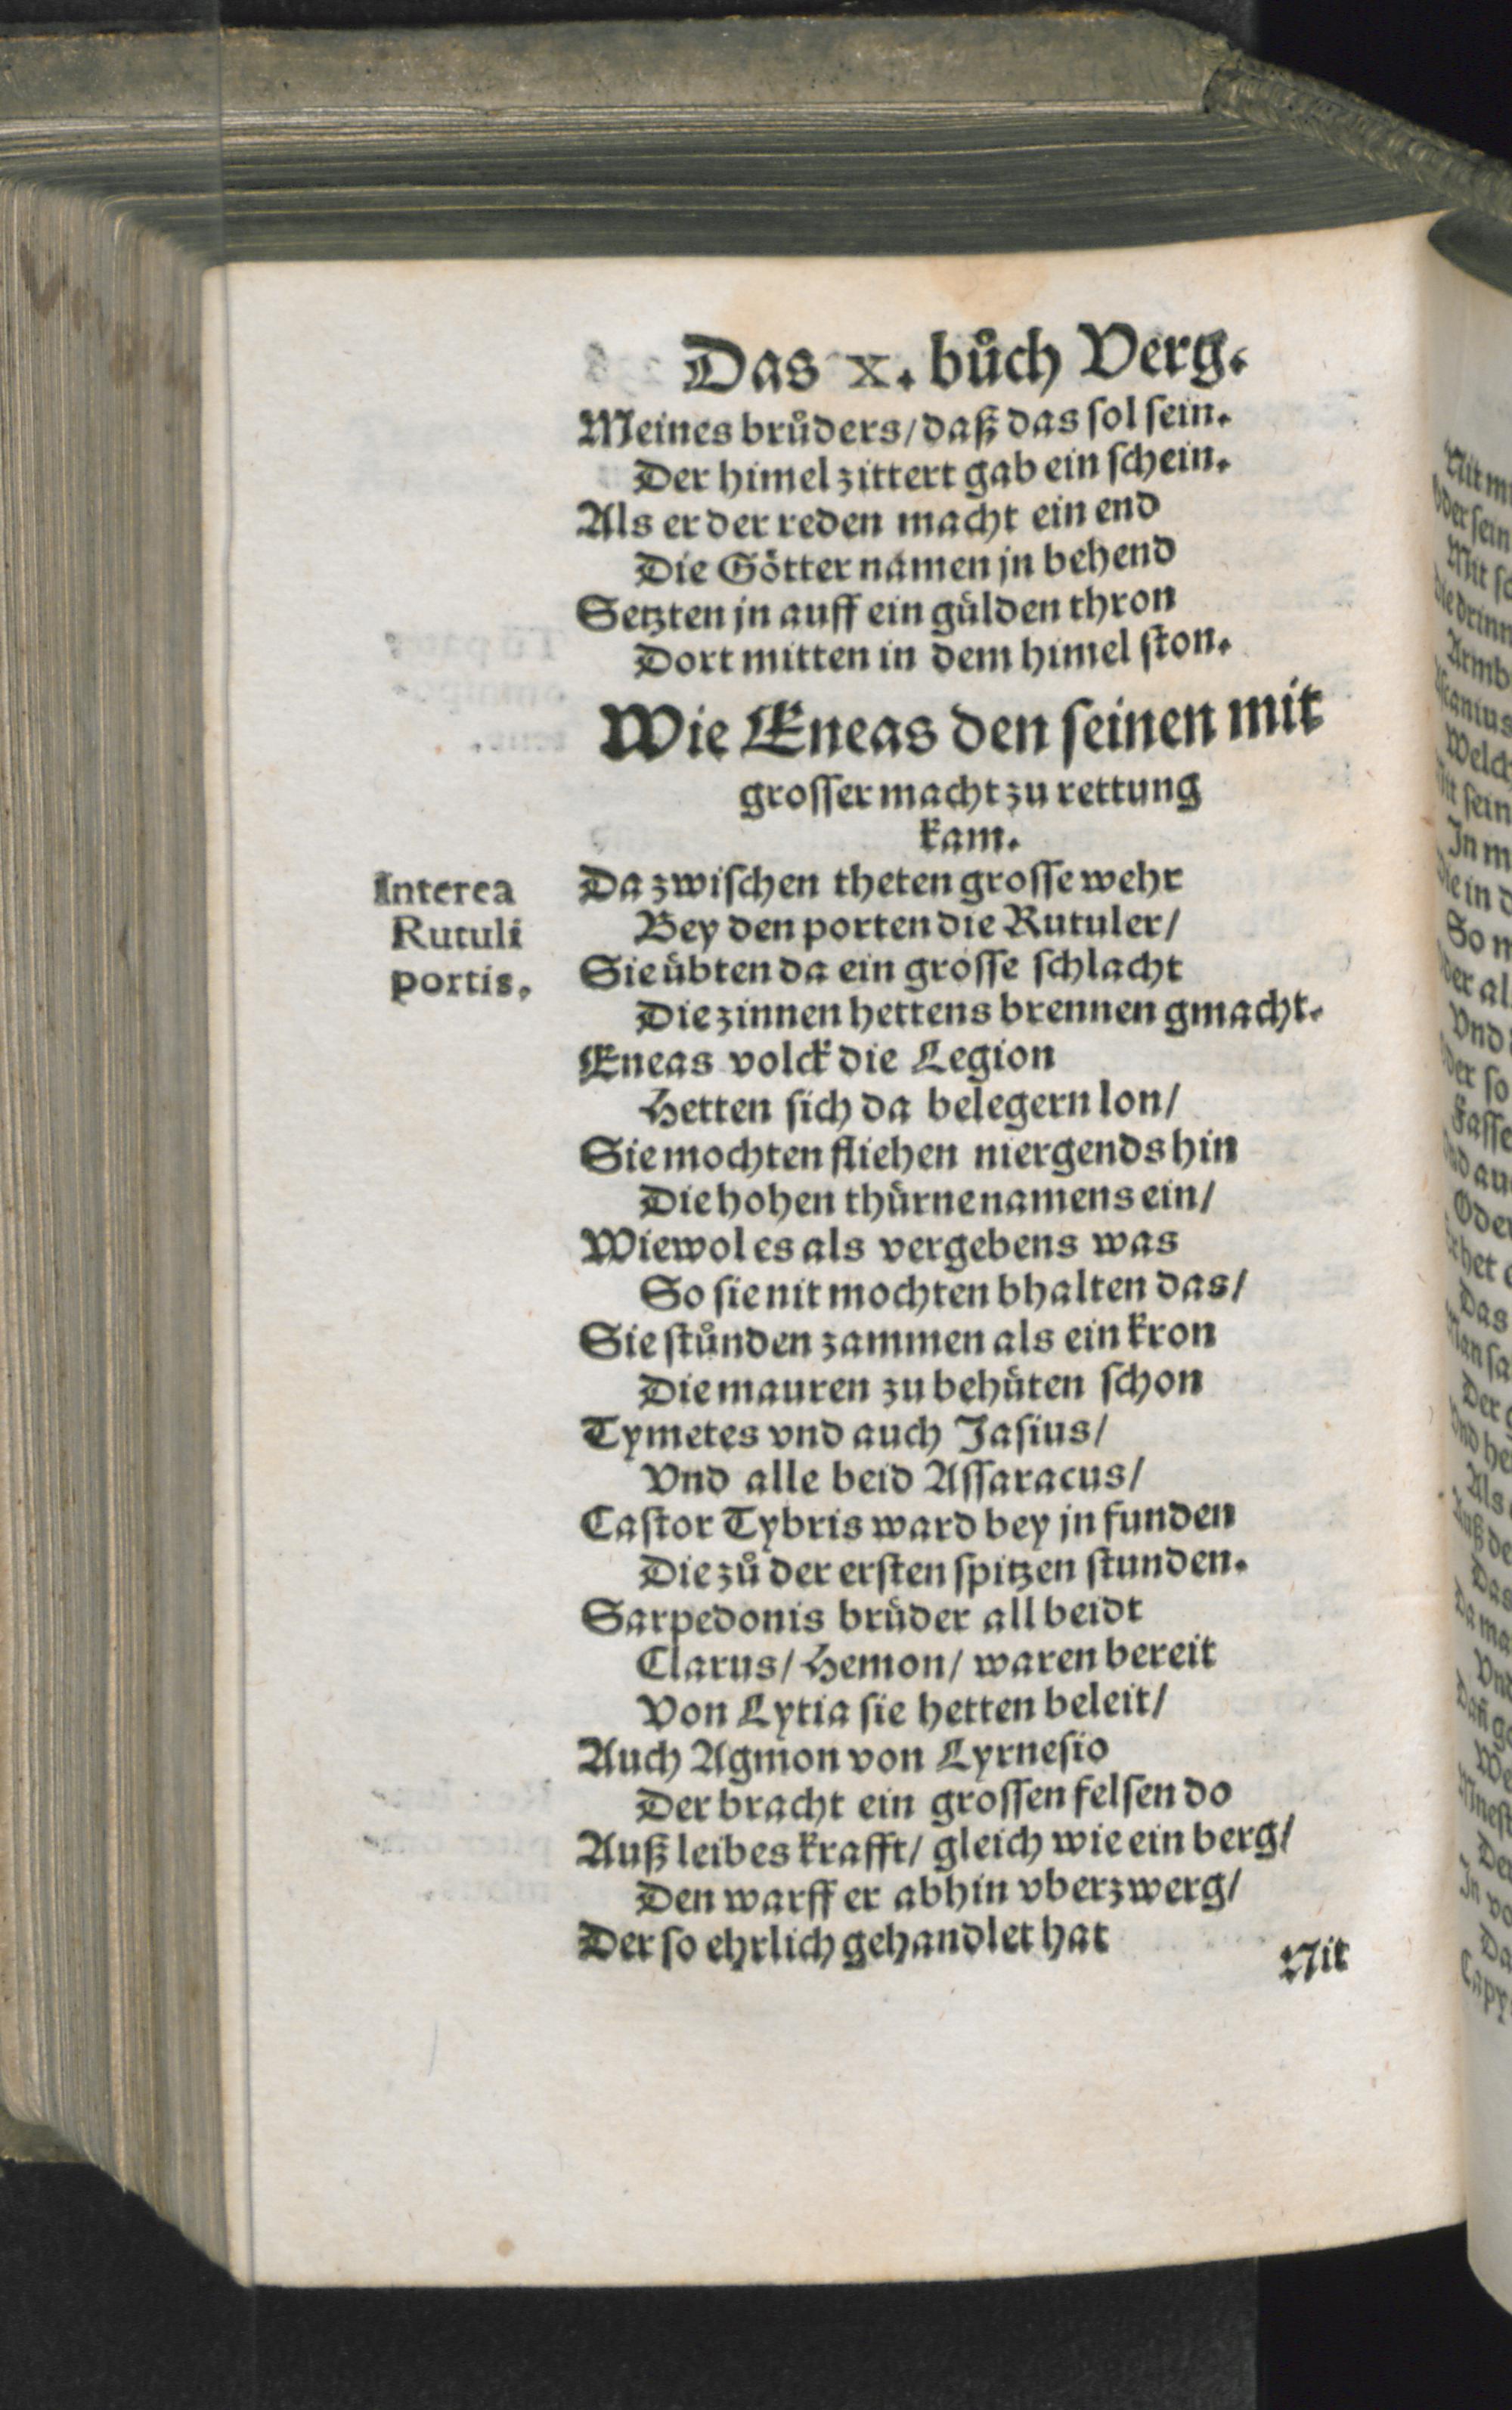 Das x. bůch Verg.
Meines brůders/ daß das sol sein.
Der himel zittert gab ein schein.
Als er der reden macht ein end
Die Götter namen jn behend
Setzten jn auff ein gülden thron
Dort mitten in dem himel ston.
Wie Eneas den seinen mit
grosser macht zu rettung
kam.
Interea
Rutuli
portis.
Da zwischen theten grosse wehr
Bey den porten die Rutuler/
Sie übten da ein grosse schlacht
Die zinnen hettens brennen gmacht.
Eneas volck die Legion
Hetten sich da belegern lon/
Sie mochten fliehen niergends hin
Die hohen thürne namens ein/
Wiewol es als vergebens was
So sie nit mochten bhalten das/
Sie stůnden zammen als ein kron
Die mauren zu behüten schon
Tymetes vnd auch Jasius/
Vnd alle beid Assaracus/
Castor Tybris ward bey jn funden
Die zů der ersten spitzen stunden.
Sarpedonis brüder all beidt
Clarus/ Hemon/ waren bereit
Von Lytia sie hetten beleit/
Auch Agmon von Lyrnesio
Der bracht ein grossen felsen do
Auß leibes krafft/ gleich wie ein berg/
Den warff er abhin vberzwerg/
Der so ehrlich gehandlet hat
Nit